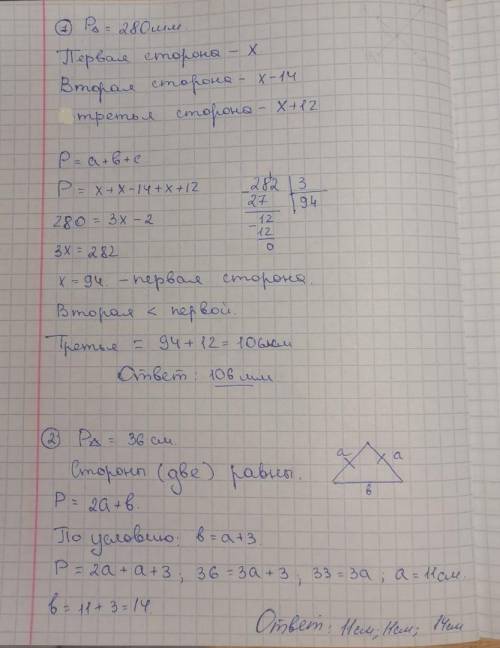 ① P△ = 280мм.
Первая сторона - x
Вторая сторона - x-14
третья сторона - x+12
P = a + в + c
P = x + x - 14 + x + 12
280 = 3x - 2
3x = 282
282 | 3
27 | 94
- 12
12
0
x = 94. - первая сторона.
Вторая < первой.
Третья = 94 + 12 = 106мм
Ответ: 106 мм
② P△ = 36 см.
Стороны (две) равны.
a a
в
P = 2a + в.
По условию: в = a + 3
P = 2a + a + 3 ; 36 = 3a + 3 ; 33 = 3a ; a = 11 см.
в = 11 + 3 = 14
Ответ: 11см; 11см; 14см